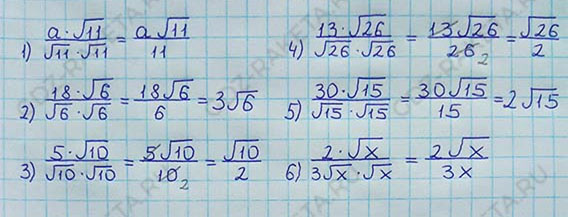 1) a·√11 / √11·√11 = a√11 / 11
2) 18·√6 / √6·√6 = 18√6 / 6 = 3√6
3) 5·√10 / √10·√10 = 5√10 / 10 2 = √10 / 2
4) 13·√26 / √26·√26 = 13√26 / 26 2 = √26 / 2
5) 30·√15 / √15·√15 = 30√15 / 15 = 2√15
6) 2·√x / 3√x·√x = 2√x / 3x